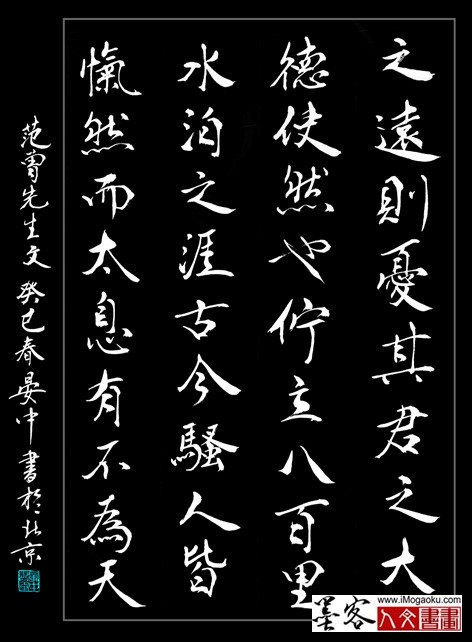 之遠則憂其君之大
德使然也佇立八百里
水泊之涯古今騷人皆
愾然而太息有不為天
范曾先生文癸巳春晏中書於北京
墨客
www.iMogaoku.com
人文書畫